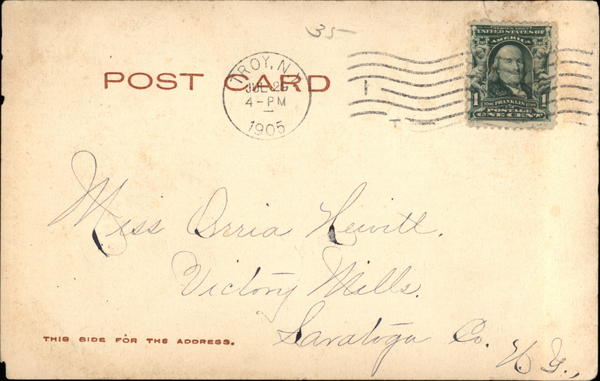 35
POST CARD
TROY, N.Y.
JUL 25
4-PM
1905
UNITED STATES OF
AMERICA
FRANKLIN
1 1
POSTAGE
ONE CENT
Miss Orria Hewitt.
Victory Mills.
Saratoga Co.
N.Y.,
THIS SIDE FOR THE ADDRESS.